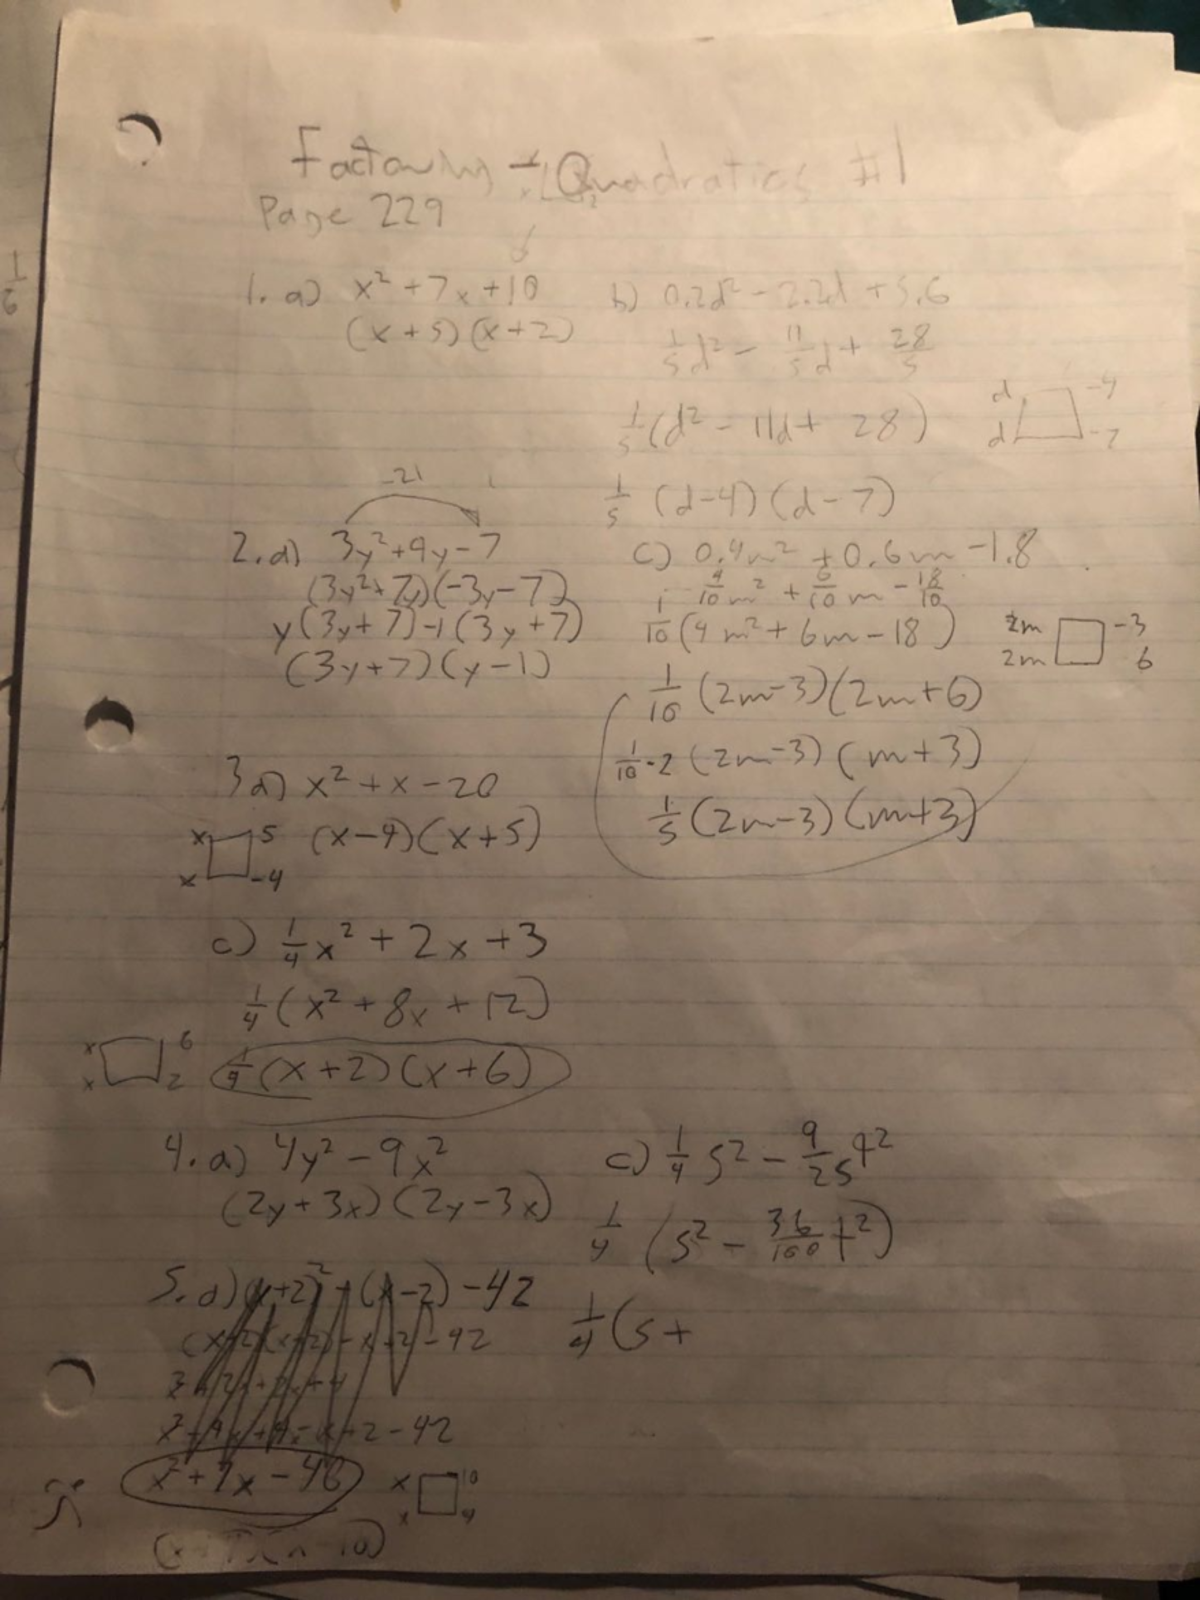 Factoring Quadratics #1
Page 229
1. a) x² + 7x + 10
(x + 5)(x + 2)
b) 0.2d² - 2.2d + 5.6
1/5 d² - 11/5 d + 28/5
1/5 (d² - 11d + 28)
d -4
d -7
1/5 (d-4)(d-7)
-21
2. a) 3y² + 4y - 7
(3y² + 7y)(-3y - 7)
y(3y + 7) -1(3y + 7)
(3y + 7)(y - 1)
c) 0.4m² + 0.6m - 1.8
4/10 m² + 6/10 m - 18/10
1/10 (4m² + 6m - 18)
2m -3
2m 6
1/10 (2m-3)(2m+6)
1/10 · 2 (2m-3)(m+3)
1/5 (2m-3)(m+3)
3 a) x² + x - 20
x 5
x -4
(x-4)(x+5)
c) 1/4 x² + 2x + 3
1/4 (x² + 8x + 12)
x 6
x 2
1/4 (x+2)(x+6)
4. a) 4y² - 9x²
(2y + 3x)(2y - 3x)
c) 1/4 s² - 9/25 t²
1/4 (s² - 36/100 t²)
1/4 (s +
5. a) (x+2)² - (x-2) - 42
- 42
+ 2 - 42
x
x